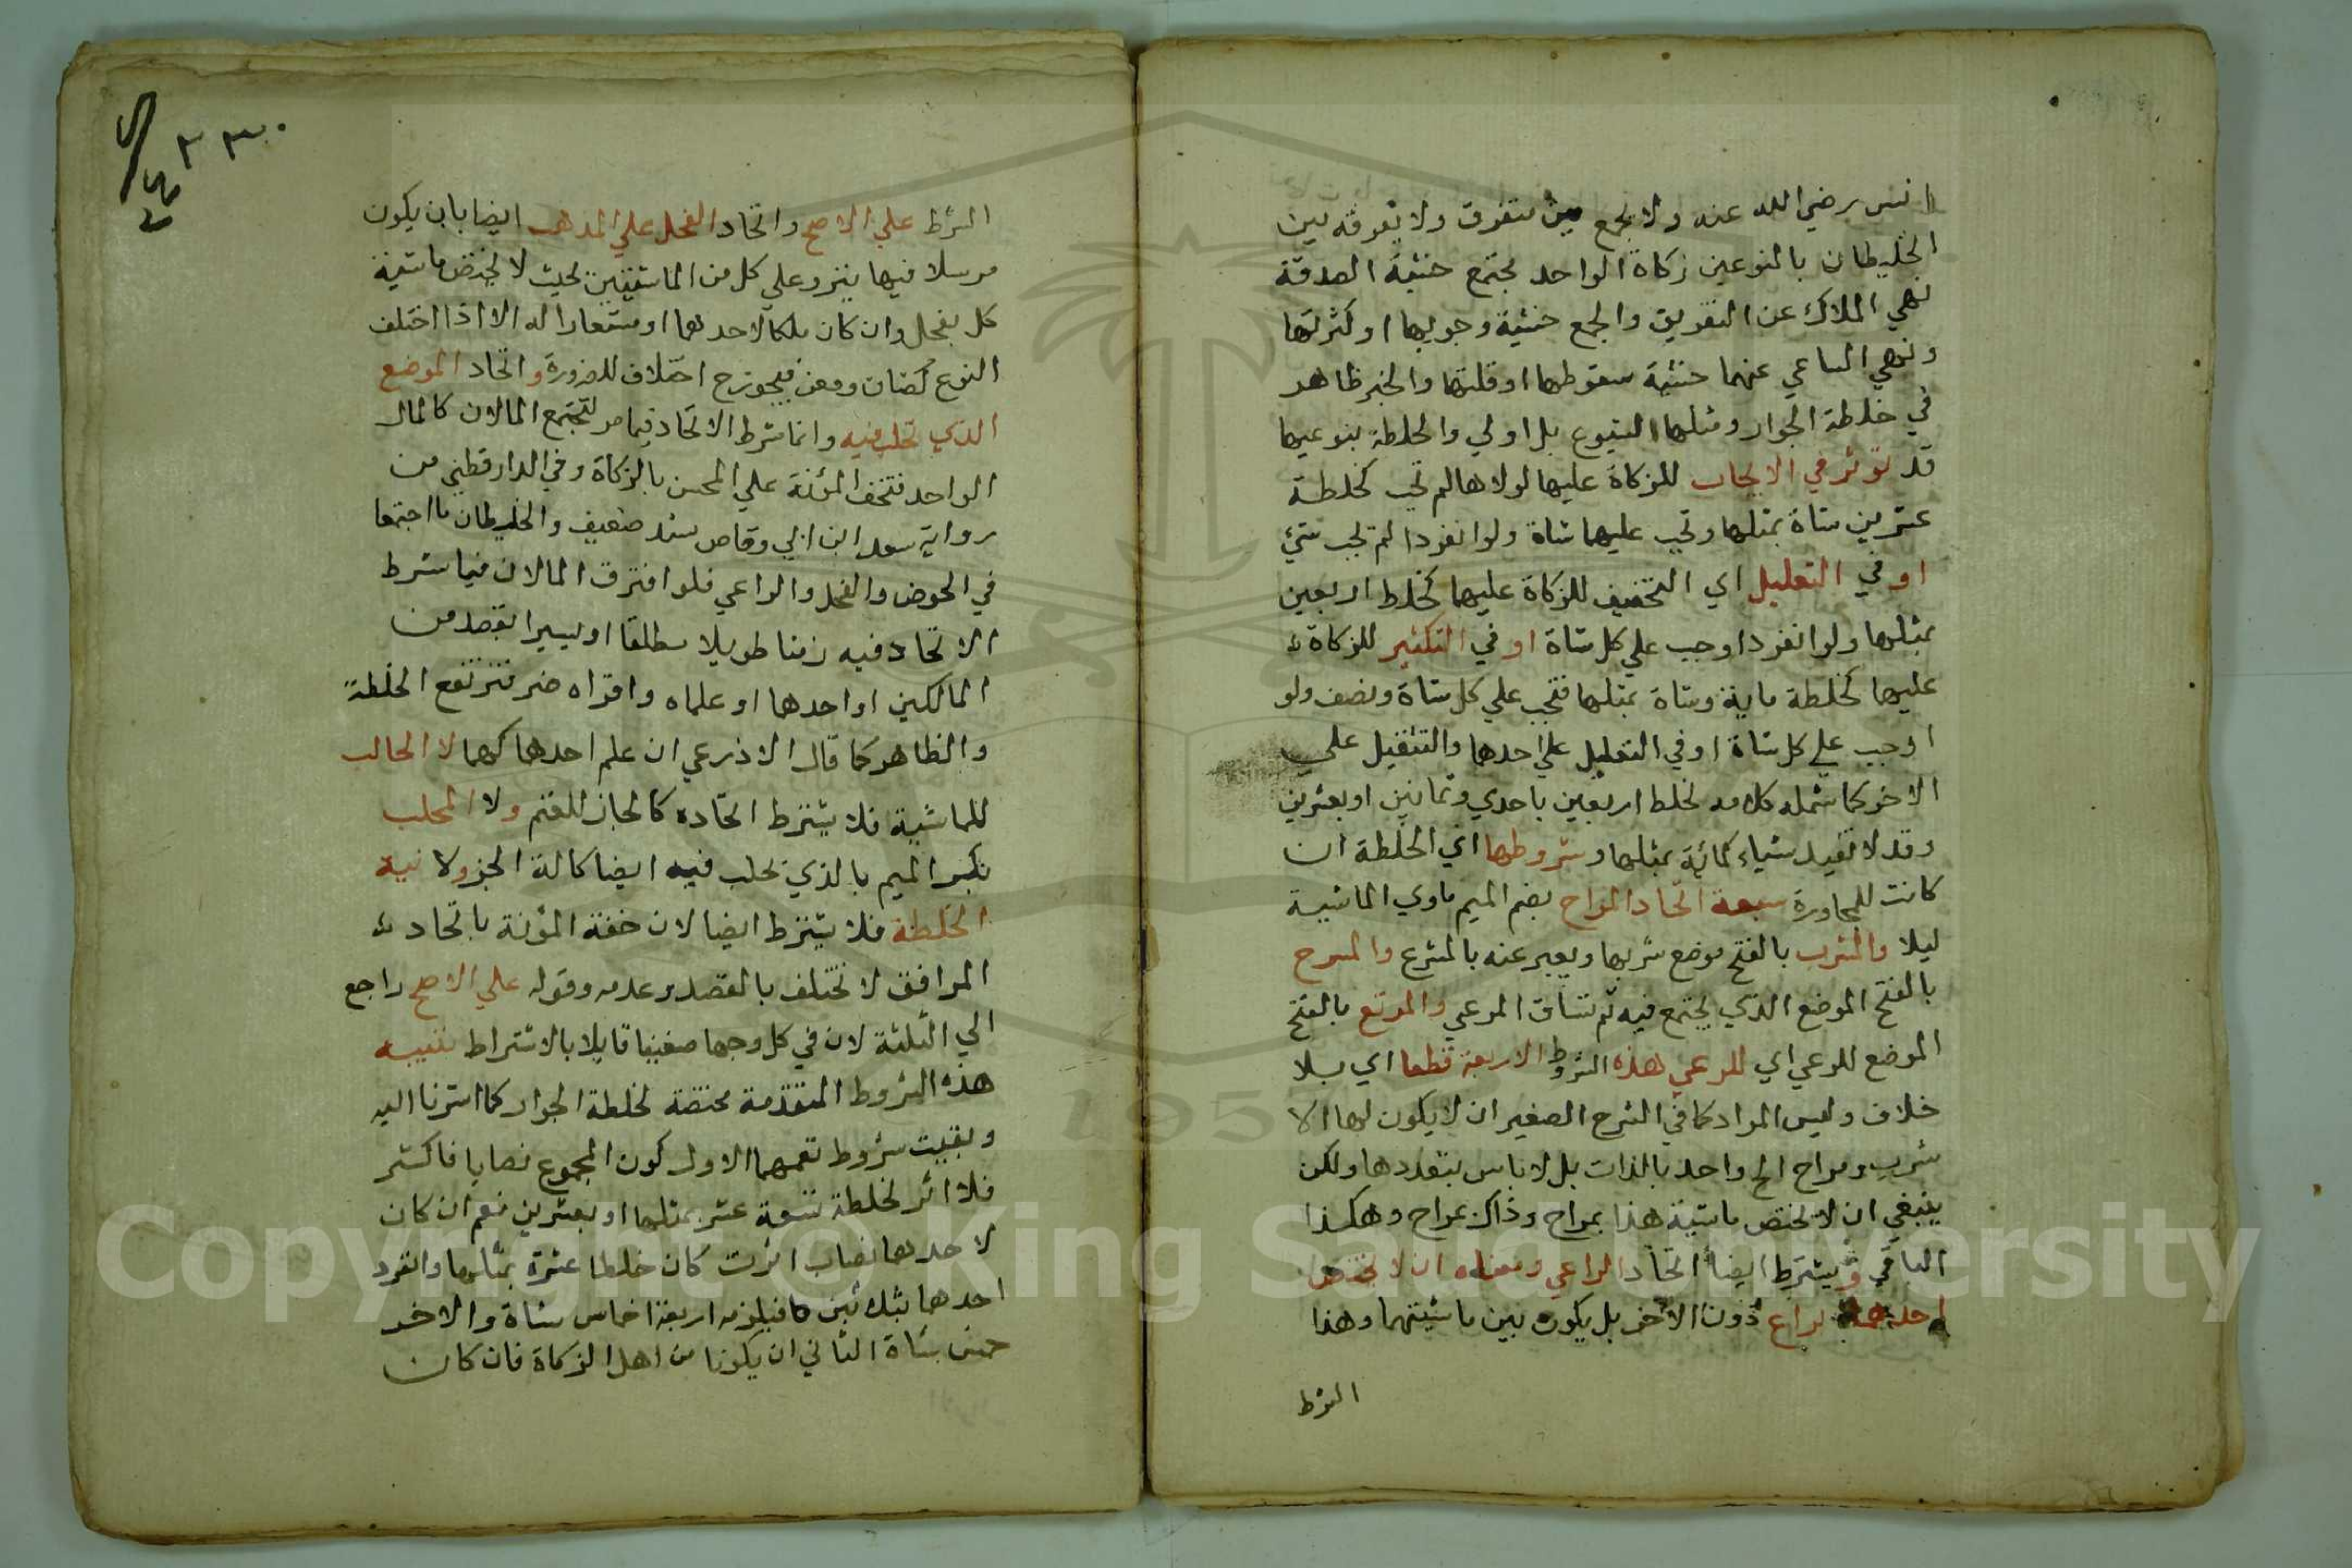 انس رضي الله عنه ولا يجمع بين متفرق ولا يفرق بين
الخليطان بالنوعين زكاة الواحد يجتمع خشية الصدقة
نهي الملاك عن التفريق والجمع خشية وجوبها او كثرتها
ونهي الساعي عنهما خشية سقوطها او قلتها والخبر ظاهر
في خلطة الجوار ومثلها الشيوع بل اولي والخلطة بنوعيها
قد تؤثر في الايجاب للزكاة عليها لولاها لم تجب كخلطة
عشرين شاة بمثلها وتجب عليهما شاة ولو انفردا لم تجب شئ
او في التقليل اي التخفيف للزكاة عليهما كخلط اربعين
بمثلها ولو انفردا وجب علي كل شاة او في التكثير للزكاة
عليهما كخلطة ماية وشاة بمثلها فتجب علي كل شاة ونصف ولو
اوجب علي كل شاة او في التقليل علي احدها والتثقيل علي
الاخر كما شمله كلامه لخلط اربعين باحدي وثمانين او بعشرين
وقد لا تفيد شياء كمائة بمثلها وشروطها اي الخلطة ان
كانت للمجاورة سبعة اتحاد المراح بضم الميم ماوي الماشية
ليلا والمشرب بالفتح موضع شربها ويعبر عنه بالمشرع والمسرح
بالفتح الموضع الذي يجتمع فيه ثم تساق المرعي والمرتع بالفتح
الموضع للرعي اي المرعي هذه الشروط الاربعة قطعا اي بلا
خلاف وليس المراد كما في الشرح الصغير ان لا يكون لها الا
شرب ومراح الخ واحد بالذات بل لا باس بتعددها ولكن
ينبغي ان لا تختص ماشية هذا بمراح وذاك بمراح وهكذا
الباقي ويشترط ايضا اتحاد الراعي ومعناه ان لا يختص
احدهما براع دون الاخر بل يكون بين ماشيتهما وهذا
الشرط
٢٣٠
الشرط علي الاصح واتحاد الفحل علي المذهب ايضا بان يكون
مرسلا فيها ينزو علي كل من الماشيتين بحيث لا يختص ماشية
كل بفحل وان كان ملكا لاحدهما او مستعارا له الا اذا اختلف
النوع كضان ومعز فيجوز ح اختلاف للضرورة واتحاد الموضع
الذي تحلب فيه وانما شرط الاتحاد فيما مر لتجتمع المالان كالمال
الواحد فتخف المؤنة علي المحسن بالزكاة وفي الدارقطني من
رواية سعد ابن ابي وقاص بسند ضعيف والخليطان ما اجتمعا
في الحوض والفحل والراعي فلو افترق المالان فيما شرط
الاتحاد فيه زمنا طويلا مطلقا او يسيرا بقصد من
المالكين او احدهما او علماه واقراه ضر فترتفع الخلطة
والظاهر كما قال الاذرعي ان علم احدهما كهما لا الحالب
للماشية فلا يشترط اتحاده كالجاز للغنم ولا المحلب
بكسر الميم بالذي تحلب فيه ايضا كالة الجز ولا نية
الخلطة فلا يشترط ايضا لان خفة المؤنة باتحاد
المرافق لا تختلف بالقصد وعدمه وقوله علي الاصح راجع
الي الثلثة لان في كل وجها ضعيفا قايلا بالاشتراط تنبيه
هذه الشروط المتقدمة مختصة لخلطة الجوار كما اشرنا اليه
وبقيت شروط تعمهما الاول كون المجموع نصابا فاكثر
فلا اثر لخلطة تسعة عشر بمثلها او بعشرين نعم ان كان
لاحدهما نصاب اثرت كان خلطا عشرة بمثلها وانفرد
احدهما بثلاثين فيلزمه اربعة اخماس شاة والاخر
خمس شاة الثاني ان يكونا من اهل الزكاة فان كان